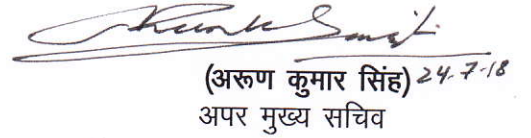 (अरूण कुमार सिंह) 24-7-18
अपर मुख्य सचिव